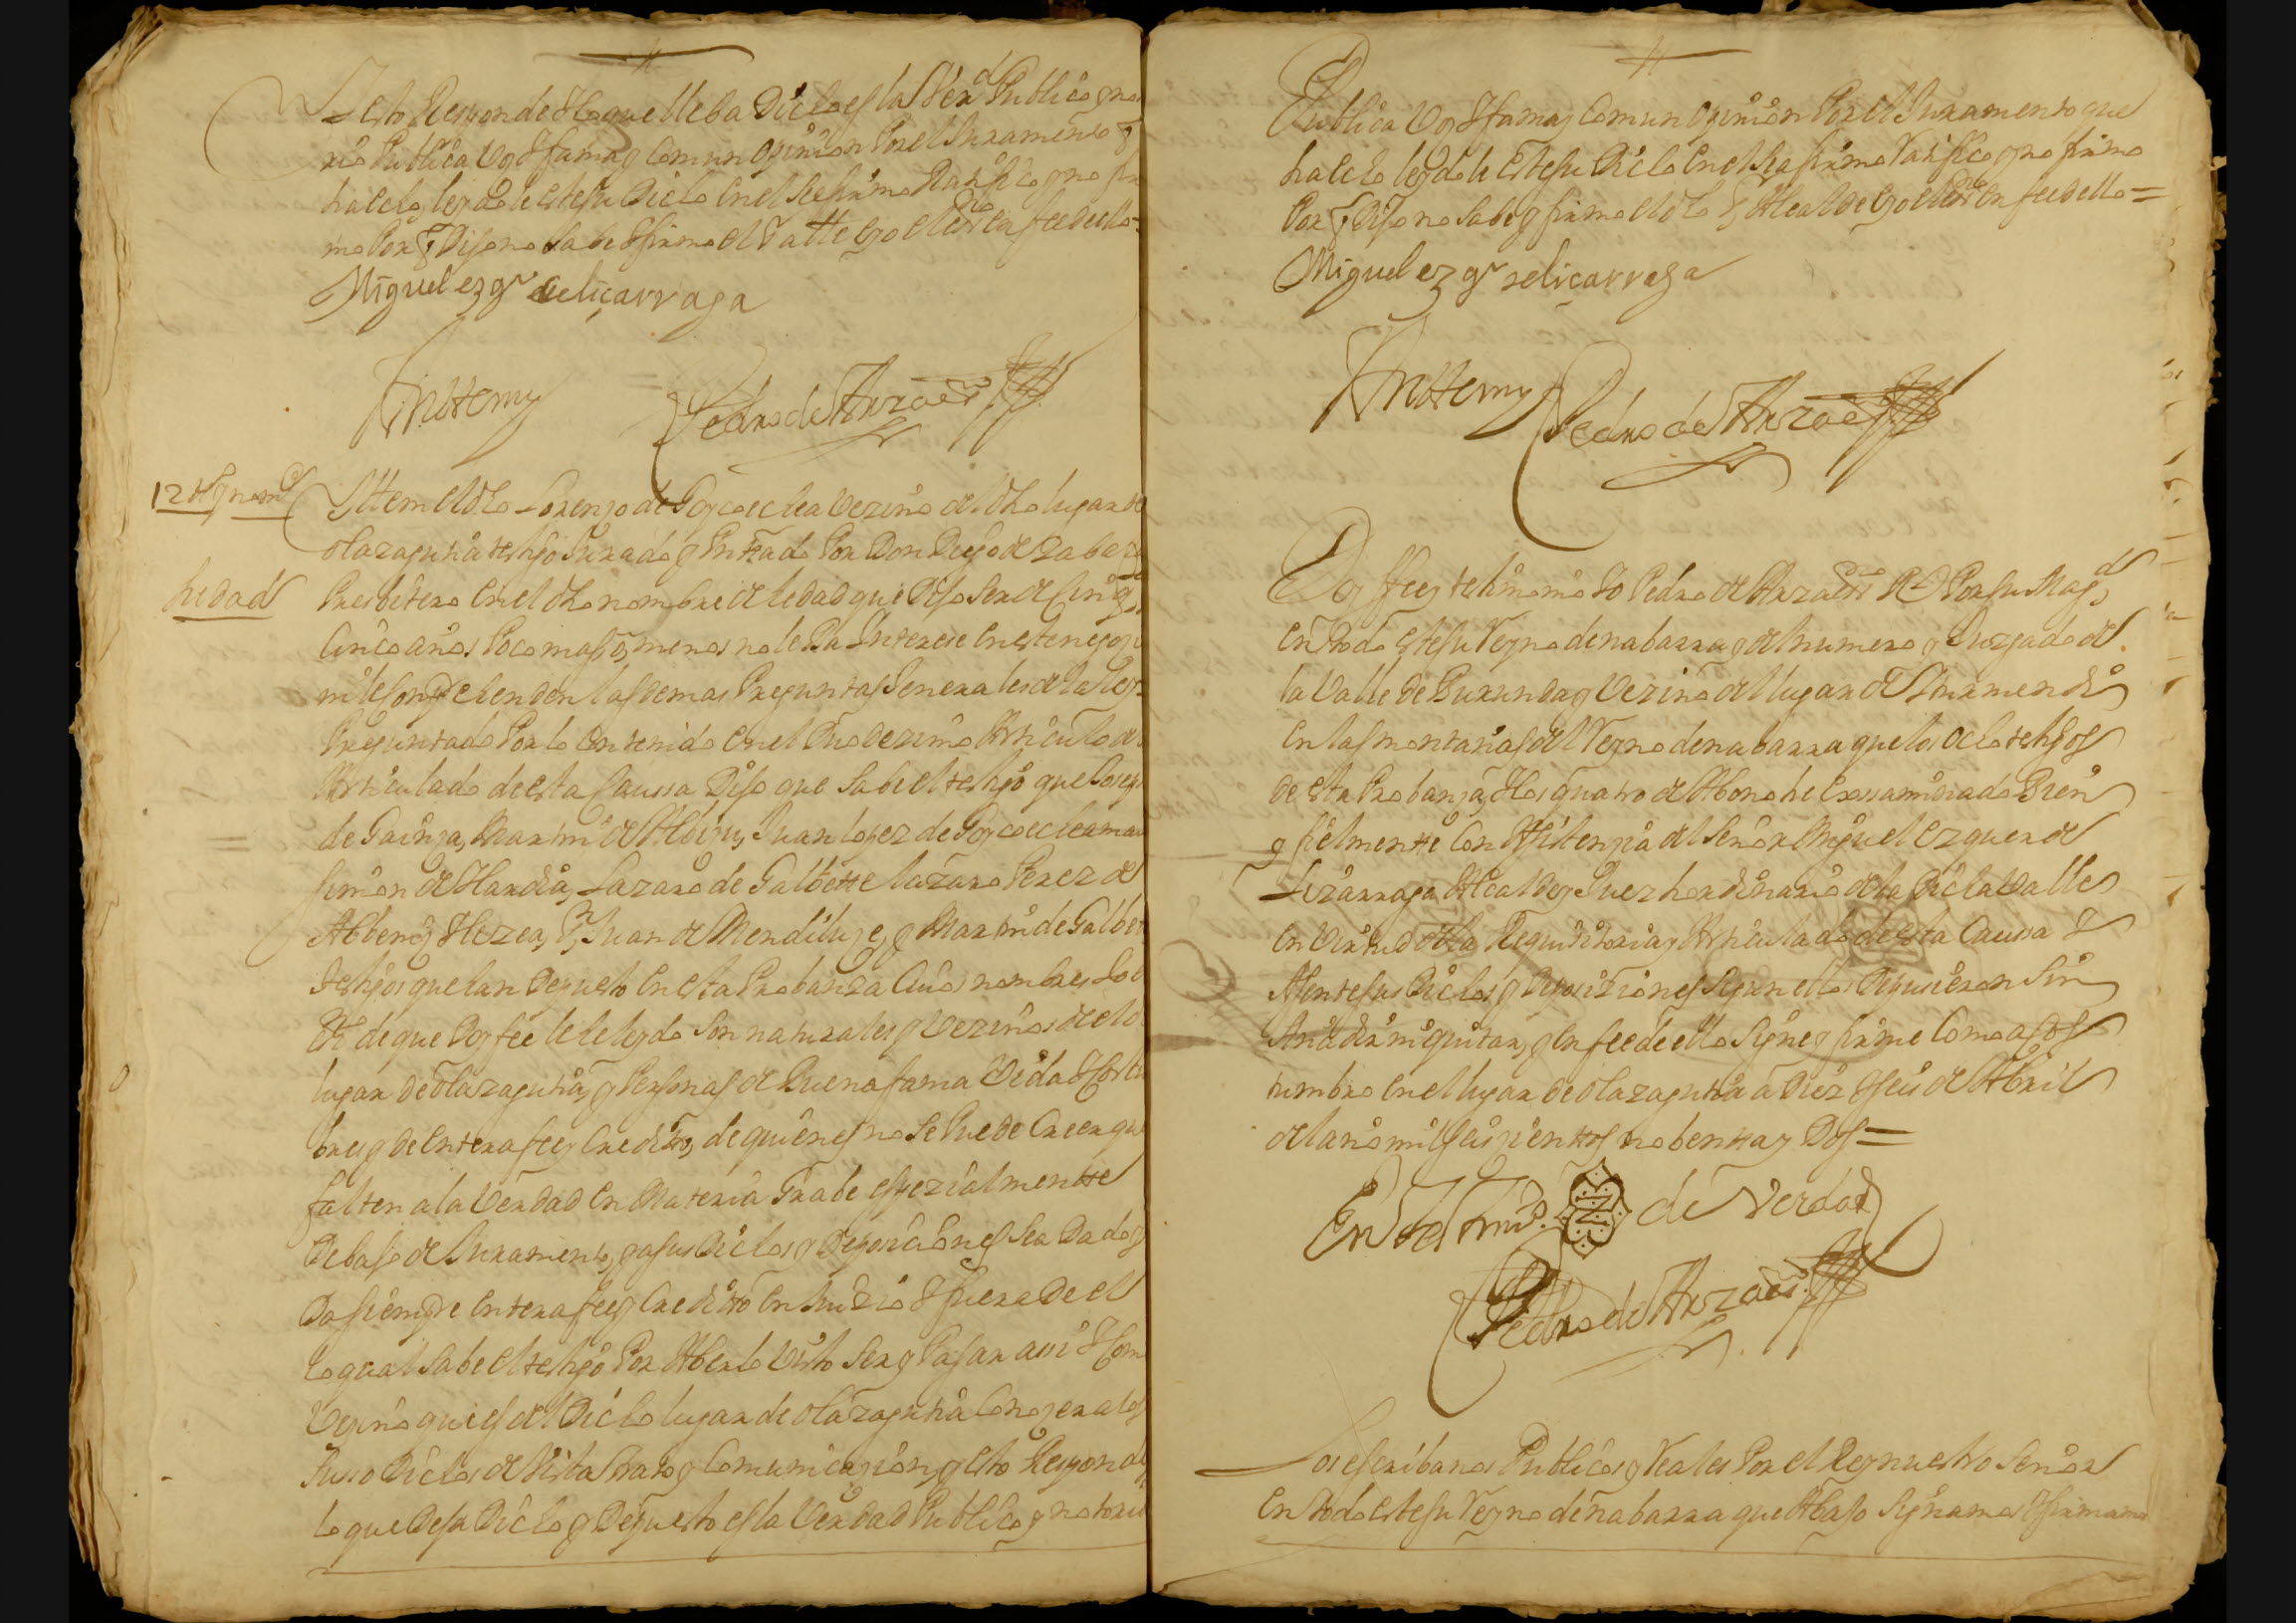 Y esto Responde Y lo que lleba Dicho es la Verd Publico y no
rio Publica Voz Y fama y Comun Opinion Por el Juramento q
ha echo leydole este su Dicho en el Se afirmo Ratifico y no fir
mo Por q Dijo no Sabe Y firmo el dho Alle e yo el ssno en fee de ello
Miguel ezqr de liçarraga
Ante my Pedro de Arza ssno
12 tgo
Yttem el dho Lorenzo de Goycoechea Vezino del dho lugar de
olazagutia testigo Jurado y Pntado Por Don Diego de Zaba
hedad
Presbitero en el dho nombre de hedad que Dijo Ser de Cinq
Cinco años Poco mas o menos no le Ba Interese en este negoçi
ni le Conprehenden las demas Preguntas Generales de la ley
Preguntado Por lo Contenido en el Articulo de
Articulado de esta Caussa Dijo que Sabe el testigo que Joseph
de Gainza, Martin de Albizu, Juan lopez de Goycoechea ma
Simon de Hardia, Lazaro de Galbette lazaro Perez de
Albeniz Juan de Mendiluze, y Martin de Galbet
testigos que han Depuesto en esta Probanza Cuios nombres Yo el
ssno de que Doy fee le he leydo Son naturales y Vezinos de el d
lugar de olazagutia, y Personas de Buena fama Vida Y Costu
bres y de entera fee y Credito, de quienes no Se Puede Creer que
falten a la Verdad en Materia Grabe espezialmente
debajo de Juramento, y a sus Dichos y Deposiciones Se a Dado y
Da siempre entera fee y Credito en Juizio Y fuera de el
lo qual Sabe el testigo Por Aberlo Visto Ser y Pasar assi Y Como
Vezino que es del Dicho lugar de olazagutia Conozer a los
Suso Dichos de Vista trato y Comunicazion, y esto Responde
lo que Deja Dicho y Depuesto es la Verdad Publico y notorio
Publica Voz Y fama y Comun Opinion Por el Juramento que
ha echo leydole este su Dicho en el Se afirmo Ratifico y no firmo
Por q Dijo no Sabe y firmo el dho Sr Alcalde e yo el ssno en fee de ello =
Miguel ezqr de liçarraga
Ante my Pedro de Arza ssno
Doy ffee y testimonio Yo Pedro de Arza ssno Rl Por su Magd
en todo este su Reyno de nabarra y del numero y Juzgado de
la Valle de Burunda y Vezino del lugar de Iturmendi
en las montañas del Reyno de nabarra que los ocho testigos
de esta Probanza, Y los quatro de Abono he Exsaminado Bien
y fielmente Con Asistenzia del Señor Miguel Ezquer de
Lizarraga Alcalde y Juez hordinario de la Dicha Valle
en Virtud de la Requisitoria y Articulado de esta Caussa Y
Asente sus Dichos y Deposiziones Segun ellos Depusieron Sin
Añadir ni quitar, y en fee de ello Signe y firme Como acos
tumbro en el lugar de olazagutia a Diez Y seis de Abril
del año mil Seiszientos nobenta y Dos =
En testimo. de Verdad
Pedro de Arza ssno
Los escribanos Publicos y Reales Por el Rey nuestro Señor
en todo este su Reyno de nabarra que Abajo Signamos Y firmamos